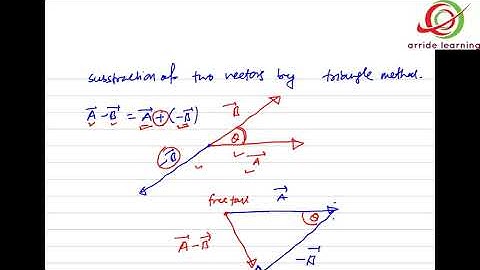 arride learning
substraction of two vectors by triangle method.
A⃗ - B⃗ = A⃗ + (-B⃗)
B⃗
θ
A⃗
-B⃗
free tail
A⃗
θ
A⃗ - B⃗
-B⃗